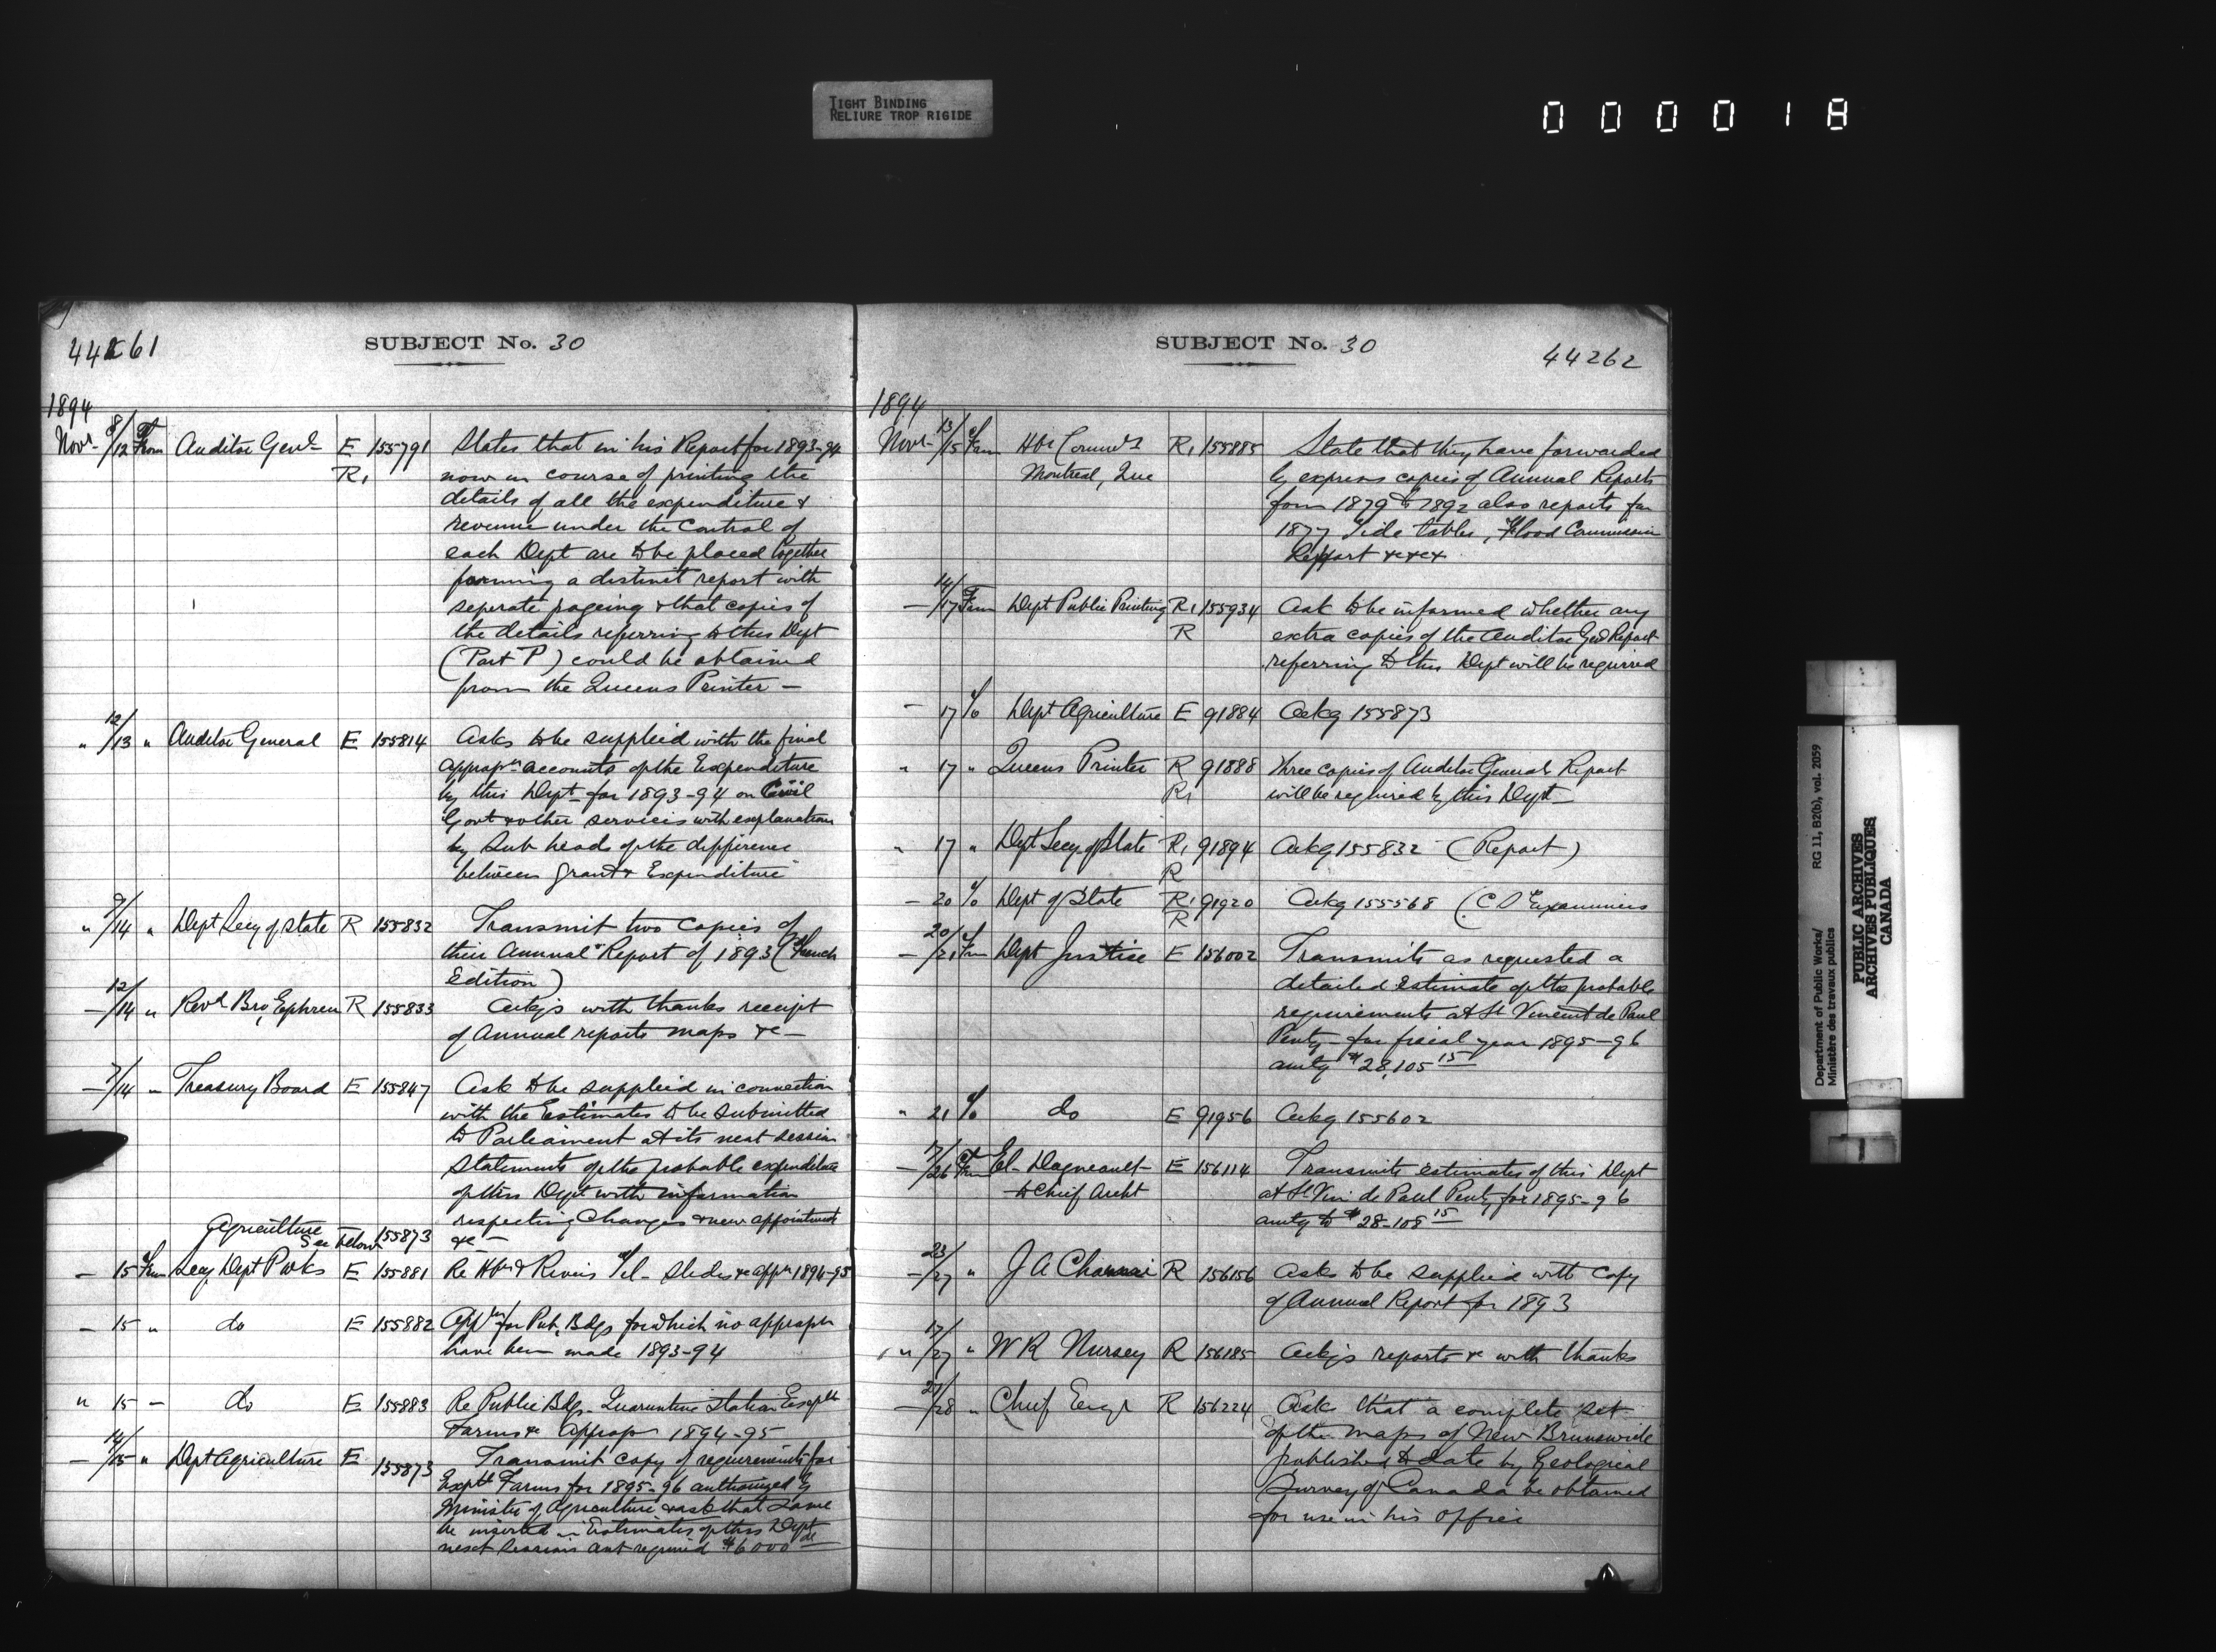 TIGHT BINDING
RELIURE TROP RIGIDE
000018
44261
SUBJECT No. 30
1894
Novr 8/12 From Auditor Genl E 155791 States that in his Report for 1893-94
R1 now in course of printing the
details of all the expenditure &
revenue under the control of
each Dept are to be placed together
forming a distinct report with
seperate pageing & that copies of
the details referring to this Dept
(Part P) could be obtained
from the Queens Printer —
" 12/13 " Auditor General E 155814 Asks to be supplied with the final
appropn accounts of the Expenditure
by this Dept for 1893-94 on Civil
Govt & other services with explanation
by Sub heads of the difference
between grant & Expenditure
" 9/14 " Dept Secy of State R 155832 Transmit two copies of
their Annual Report of 1893 (French
Edition)
— 12/14 " Revd Bro Ephrem R 155833 Ackgs with thanks receipt
of Annual reports maps &c —
— 7/14 " Treasury Board E 155847 Ask to be supplied in connection
with the Estimates to be submitted
to Parliament at its next session
Statements of the probable expenditure
of this Dept with information
respecting Changes & new appointments
Agriculture See below 155873 &c —
— 15 From Secy Dept P Wks E 155881 Re Hbrs & Rivers Tel- Slides &c appn 1894-95
— 15 " do E 155882 Appn for Pub. Bdgs for which no appropn
have been made 1893-94
" 15 — do E 155883 Re Public Bdgs Quarantine Station Exptl
Farms &c Approp 1894-95
— 14/15 " Dept Agriculture E 155873 Transmit copy of requirements for
Exptl Farms for 1895-96 authorized by
Minister of Agriculture & ask that same
be inserted in Estimates of this Dept
next Sessions amt required $6000
SUBJECT No. 30
44262
1894
Novr 13/15 From Hbr Commrs R1 155885 State that they have forwarded
Montreal, Que by express copies of Annual Reports
from 1879 to 1892 also reports for
1877 Tide tables, Flood Commission
Report &c&c
— 14/17 From Dept Public Printing R1 155934 Ask to be informed whether any
R extra copies of the Auditor Genl Report
referring to this Dept will be required
— 17 To Dept Agriculture E 91884 Ackg 155873
" 17 " Queens Printer R 91888 Three copies of Auditor Generals Report
R1 will be required by this Dept —
" 17 " Dept Secy of State R1 91894 Ackg 155832 (Report)
R
— 20 To Dept of State R1 91920 Ackg 155568 (C S Examiners
R
— 20/21 From Dept Justice E 156002 Transmits as requested a
detailed estimate of the probable
requirements at St Vincent de Paul
Penty for fiscal year 1895-96
amtg $28,105 15
" 21 To do E 91956 Ackg 155602
— /26 From El- Dagneault E 156114 Transmits estimates of this Dept
to Chief Archt at St Vin de Paul Penty for 1895-96
amtg to $28-105 15
— 23/27 " J A E 156156 Asks to be supplied with copy
of Annual Report for 1893
" 17/27 " W R Nursey R 156185 Ackgs reports &c with thanks
— 27/28 " Chief Engr R 156224 Asks that a complete set
of the maps of New Brunswick
published to date by Geological
Survey of Canada be obtained
for use in his office
Department of Public Works/ RG 11, B2(b), vol. 2059
Ministère des travaux publics
PUBLIC ARCHIVES
ARCHIVES PUBLIQUES
CANADA